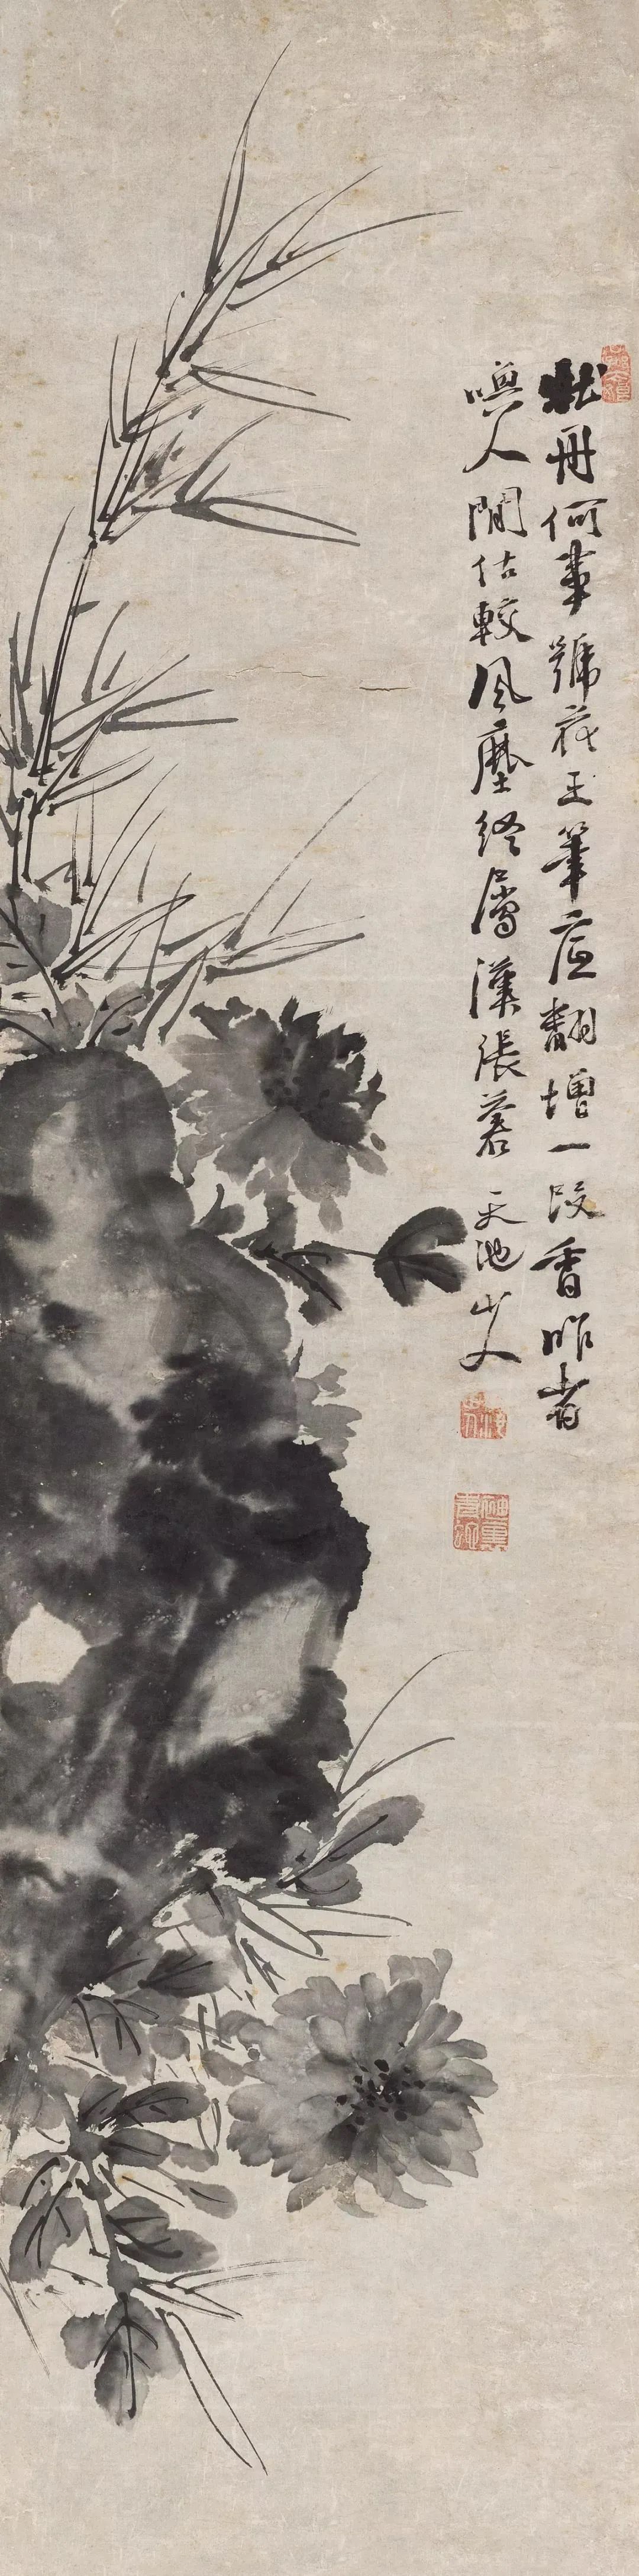 牡丹何事號花王筆底翻增一段香昨者
嗅人閒估較風塵終屬漢張蒼 天池山人